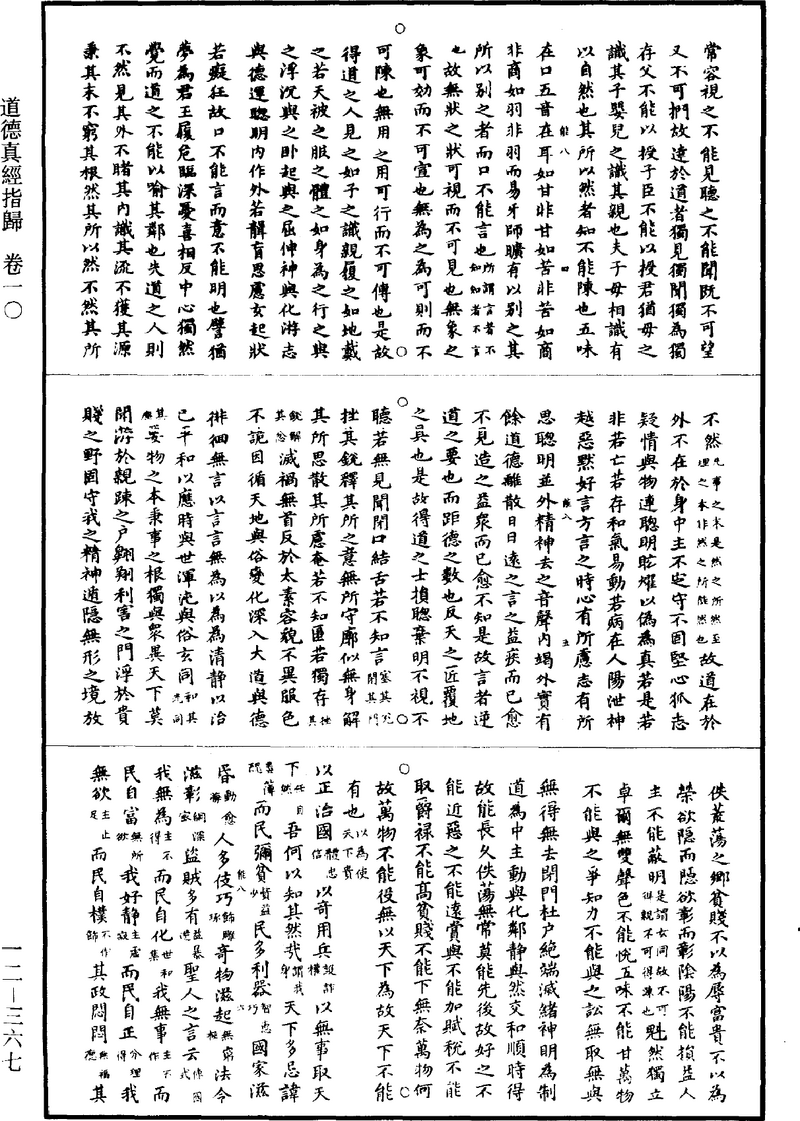 常容視之不能見聽之不能聞既不可望
又不可捫故達於道者獨見獨聞獨為獨
存父不能以授子臣不能以授君猶母之
識其子嬰兒之識其親也夫子母相識有
以自然也其所以然者知不能陳也五味
在口五音在耳如甘非甘如苦非苦如商
非商如羽非羽而易牙師曠有以別之其
所以別之者而口不能言也所謂言者不知知者不言
也故無狀之狀可視而不可見也無象之
象可効而不可宣也無為之為可則而不
可陳也無用之用可行而不可傳也是故
得道之人見之如子之識親履之如地戴
之若天被之服之體之如身為之行之與
之浮沉與之臥起與之屈伸神與化游志
與德運聰明內作外若聾盲思慮玄起狀
若癡狂故口不能言而意不能明也譬猶
夢為君王履危臨深憂喜相反中心獨然
覺而道之不能以喻其鄰也失道之人則
不然見其外不睹其內識其流不獲其源
秉其末不窮其根然其所以然不然其所
不然凡事之末是然之所然至理之本非然之所能然也故道在於
外不在於身中主不定守不固堅心狐志
疑情與物連聰明眩燿以偽為真若是若
非若亡若存和氣易動若病在人陽泄神
越惡默好言方言之時心有所慮志有所
思聰明並外精神去之音聲內竭外實有
餘道德離散日日遠之言之益疾而已愈
不見造之益衆而已愈不知是故言者逆
道之要也而距德之數也反天之匠覆地
之具也是故得道之士損聰棄明不視不
聽若無見聞閉口結舌若不知言塞其兌閉其門
挫其銳釋其所之意無所守廓似無身解
其所思散其所慮奄若不知匱若獨存挫其銳解其忿
滅禍無首反於太素容貌不異服色
不詭因循天地與俗變化深入大道與德
徘徊無言以言言無為以為為清靜以治
己平和以應時與世渾沌與俗玄同和其光同其塵
萬物之本秉事之根獨與衆異天下莫
聞游於親踈之戶翱翔利害之門浮於貴
賤之野固守我之精神遁隱無形之境放
佚荒蕩之鄉貧賤不以為辱富貴不以為
榮欲隱而隱欲彰而彰陰陽不能損益人
主不能蔽明是謂玄同故不可得親不可得踈也魁然獨立
卓爾無雙聲色不能悅五味不能甘萬物
不能與之爭知力不能與之訟無取無與
無得無去閉門杜戶絕端滅緒神明為制
道為中主動與化鄰靜與然交和順時得
故能長久佚蕩無常莫能先後故好之不
能近惡之不能遠賞與不能加賦稅不能
取爵祿不能高貧賤不能下無奈萬物何
故萬物不能役無以天下為故天下不能
有也以為使天下貴
以正治國體忠信以奇用兵設詐權以無事取天
下任自然吾何以知其然哉謂我身天下多忌諱
而民彌貧民多利器國家滋
昏人多伎巧飾雕琢奇物滋起法令
滋彰盜賊多有聖人之言云
我無為主不得而民自化世和集我無事主不作而
民自富無所欲我好靜而民自正分理得我
無欲主止足而民自樸不作飾其政悶悶無福德其
道德真經指歸　卷一〇
一二—三六七